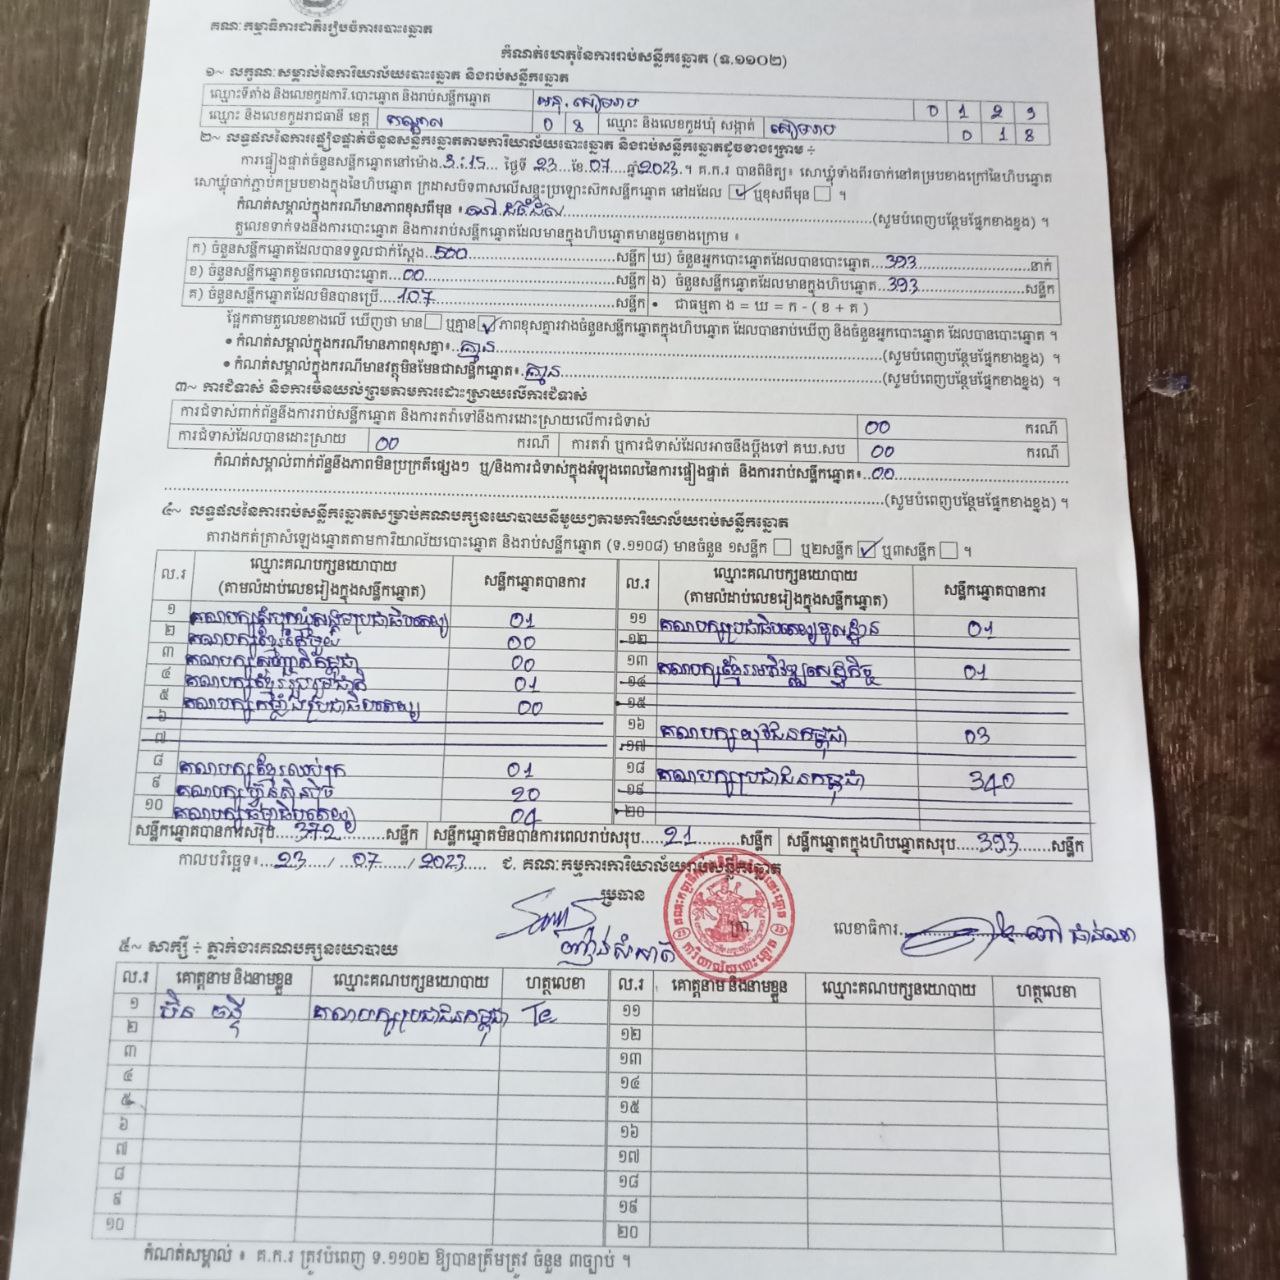 គណៈកម្មាធិការជាតិរៀបចំការបោះឆ្នោត
កំណត់ហេតុនៃការរាប់សន្លឹកឆ្នោត (ទ.១១០២)
១~ លក្ខណៈសម្គាល់នៃការិយាល័យបោះឆ្នោត និងរាប់សន្លឹកឆ្នោត
ឈ្មោះទីតាំង និងលេខកូដការិ.បោះឆ្នោត និងរាប់សន្លឹកឆ្នោត 0 1 2 9
ឈ្មោះ និងលេខកូដរាជធានី ខេត្ត កណ្តាល 0 8 ឈ្មោះ និងលេខកូដឃុំ សង្កាត់ 0 1 8
២~ លទ្ធផលនៃការផ្ទៀងផ្ទាត់ចំនួនសន្លឹកឆ្នោតតាមការិយាល័យបោះឆ្នោត និងរាប់សន្លឹកឆ្នោតដូចខាងក្រោម ÷
ការផ្ទៀងផ្ទាត់ចំនួនសន្លឹកឆ្នោតនៅម៉ោង.3:15... ថ្ងៃទី 23...ខែ.07....ឆ្នាំ2023.។ គ.ក.រ បានពិនិត្យ៖ សោឃ្លុំទាំងពីរចាក់នៅគម្របខាងក្រៅនៃហិបឆ្នោត
សោឃ្លុំចាក់ភ្ជាប់គម្របខាងក្នុងនៃហិបឆ្នោត ក្រដាសបិទពាសលើសន្ទះប្រឡោះស៊កសន្លឹកឆ្នោត នៅដដែល ☑ ឬខុសពីមុន ☐ ។
កំណត់សម្គាល់ក្នុងករណីមានភាពខុសពីមុន ៖ នៅដដែល (សូមបំពេញបន្ថែមផ្នែកខាងខ្នង) ។
តួលេខទាក់ទងនឹងការបោះឆ្នោត និងការរាប់សន្លឹកឆ្នោតដែលមានក្នុងហិបឆ្នោតមានដូចខាងក្រោម ៖
ក) ចំនួនសន្លឹកឆ្នោតដែលបានទទួលជាក់ស្តែង..500......សន្លឹក ឃ) ចំនួនអ្នកបោះឆ្នោតដែលបានបោះឆ្នោត...393......នាក់
ខ) ចំនួនសន្លឹកឆ្នោតខូចពេលបោះឆ្នោត...00......សន្លឹក ង) ចំនួនសន្លឹកឆ្នោតដែលមានក្នុងហិបឆ្នោត...393......សន្លឹក
គ) ចំនួនសន្លឹកឆ្នោតដែលមិនបានប្រើ...107......សន្លឹក • ជាធម្មតា ង = ឃ = ក - ( ខ + គ )
ផ្អែកតាមតួលេខខាងលើ ឃើញថា មាន ☐ ឬគ្មាន ☑ ភាពខុសគ្នារវាងចំនួនសន្លឹកឆ្នោតក្នុងហិបឆ្នោត ដែលបានរាប់ឃើញ និងចំនួនអ្នកបោះឆ្នោត ដែលបានបោះឆ្នោត ។
• កំណត់សម្គាល់ក្នុងករណីមានភាពខុសគ្នា៖..គ្មាន......(សូមបំពេញបន្ថែមផ្នែកខាងខ្នង) ។
• កំណត់សម្គាល់ក្នុងករណីមានវត្ថុមិនមែនជាសន្លឹកឆ្នោត៖..គ្មាន......(សូមបំពេញបន្ថែមផ្នែកខាងខ្នង) ។
៣~ ការជំទាស់ និងការមិនយល់ព្រមតាមការដោះស្រាយលើការជំទាស់
ការជំទាស់ពាក់ព័ន្ធនឹងការរាប់សន្លឹកឆ្នោត និងការតវ៉ាទៅនឹងការដោះស្រាយលើការជំទាស់ 00 ករណី
ការជំទាស់ដែលបានដោះស្រាយ 00 ករណី ការតវ៉ា ឬការជំទាស់ដែលអាចនឹងប្តឹងទៅ គឃ.សប 00 ករណី
កំណត់សម្គាល់ពាក់ព័ន្ធនឹងភាពមិនប្រក្រតីផ្សេងៗ ឬ/និងការជំទាស់ក្នុងអំឡុងពេលនៃការផ្ទៀងផ្ទាត់ និងការរាប់សន្លឹកឆ្នោត៖..00......
......(សូមបំពេញបន្ថែមផ្នែកខាងខ្នង) ។
៤~ លទ្ធផលនៃការរាប់សន្លឹកឆ្នោតសម្រាប់គណបក្សនយោបាយនីមួយៗតាមការិយាល័យរាប់សន្លឹកឆ្នោត
តារាងកត់ត្រាសំឡេងឆ្នោតតាមការិយាល័យបោះឆ្នោត និងរាប់សន្លឹកឆ្នោត (ទ.១១០៨) មានចំនួន ១សន្លឹក ☐ ឬ២សន្លឹក ☑ ឬ៣សន្លឹក ☐ ។
ល.រ ឈ្មោះគណបក្សនយោបាយ (តាមលំដាប់លេខរៀងក្នុងសន្លឹកឆ្នោត) សន្លឹកឆ្នោតបានការ ល.រ ឈ្មោះគណបក្សនយោបាយ (តាមលំដាប់លេខរៀងក្នុងសន្លឹកឆ្នោត) សន្លឹកឆ្នោតបានការ
១ គណបក្សសំបុកឃ្មុំសង្គមប្រជាធិបតេយ្យ 01 ១១ គណបក្សប្រជាធិបតេយ្យមូលដ្ឋាន 01
២ គណបក្សខ្មែរតែមួយ 00 ១២
៣ គណបក្សសញ្ជាតិកម្ពុជា 00 ១៣ គណបក្សខ្មែរអភិវឌ្ឍសេដ្ឋកិច្ច 01
៤ គណបក្សខ្មែររួបរួមជាតិ 01 ១៤
៥ គណបក្សកម្លាំងប្រជាធិបតេយ្យ 00 ១៥
៦ ១៦ គណបក្សយុវជនកម្ពុជា 03
៧ ១៧
៨ គណបក្សខ្មែរឈប់ក្រ 01 ១៨ គណបក្សប្រជាជនកម្ពុជា 340
៩ គណបក្សហ្វ៊ុនស៊ិនប៉ិច 20 ១៩
១០ គណបក្សធម្មាធិបតេយ្យ 04 ២០
សន្លឹកឆ្នោតបានការសរុប....372......សន្លឹក សន្លឹកឆ្នោតមិនបានការពេលរាប់សរុប....21......សន្លឹក សន្លឹកឆ្នោតក្នុងហិបឆ្នោតសរុប....393......សន្លឹក
កាលបរិច្ឆេទ៖...23.../...07.../ 2023... ជ. គណៈកម្មការការិយាល័យរាប់សន្លឹកឆ្នោត
ប្រធាន ត្រា លេខាធិការ
៥~ សាក្សី ÷ ភ្នាក់ងារគណបក្សនយោបាយ
ល.រ គោត្តនាម និងនាមខ្លួន ឈ្មោះគណបក្សនយោបាយ ហត្ថលេខា ល.រ គោត្តនាម និងនាមខ្លួន ឈ្មោះគណបក្សនយោបាយ ហត្ថលេខា
១ គណបក្សប្រជាជនកម្ពុជា ១១
២ ១២
៣ ១៣
៤ ១៤
៥ ១៥
៦ ១៦
៧ ១៧
៨ ១៨
៩ ១៩
១០ ២០
កំណត់សម្គាល់ ៖ គ.ក.រ ត្រូវបំពេញ ទ.១១០២ ឱ្យបានត្រឹមត្រូវ ចំនួន ៣ច្បាប់ ។